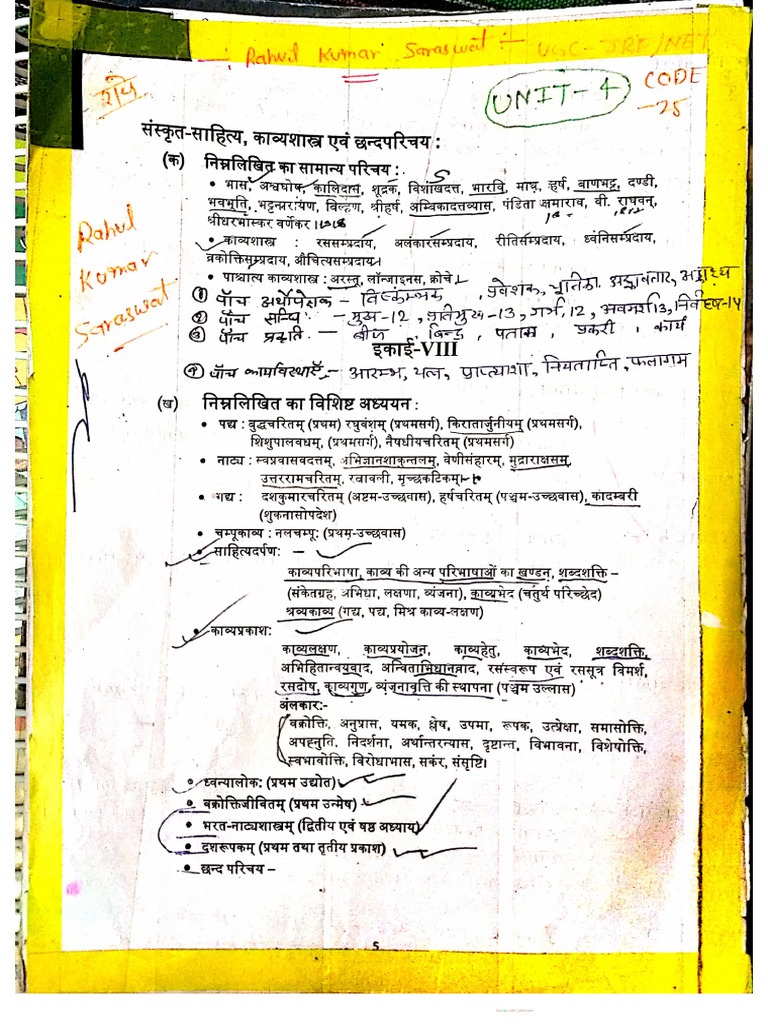 -: Rahul Kumar Saraswat :- UGC-JRF/NET
राधे
UNIT-4
CODE
-25
संस्कृत-साहित्य, काव्यशास्त्र एवं छन्दपरिचय :
(क) निम्नलिखित का सामान्य परिचय :
• भास, अश्वघोष, कालिदास, शूद्रक, विशाखदत्त, भारवि, माघ, हर्ष, बाणभट्ट, दण्डी,
भवभूति, भट्टनारायण, बिल्हण, श्रीहर्ष, अम्बिकादत्तव्यास, पंडिता क्षमाराव, वी. राघवन्,
श्रीधरभास्कर वर्णेकर
• काव्यशास्त्र : रससम्प्रदाय, अलंकारसम्प्रदाय, रीतिसम्प्रदाय, ध्वनिसम्प्रदाय,
वक्रोक्तिसम्प्रदाय, औचित्यसम्प्रदाय
• पाश्चात्य काव्यशास्त्र : अरस्तु, लॉन्जाइनस, क्रोचे
Rahul
Kumar
Saraswat
① पाँच अर्थोपेक्षक - विष्कम्भक, प्रवेशक, चूलिका, अङ्कावतार,
② पाँच सन्धि - मुख-12, प्रतिमुख-13, गर्भ, 12, अवमर्श 13, निर्वहण-14
③ पाँच प्रकृति - बीज, बिन्दु, पताका, प्रकरी, कार्य
इकाई-VIII
④ पाँच कार्यावस्थाएँ - आरम्भ, यत्न, प्राप्त्याशा, नियताप्ति, फलागम
(ख) निम्नलिखित का विशिष्ट अध्ययन :
• पद्य : बुद्धचरितम् (प्रथम) रघुवंशम् (प्रथमसर्ग), किरातार्जुनीयम् (प्रथमसर्ग),
शिशुपालवधम्, (प्रथमसर्ग), नैषधीयचरितम् (प्रथमसर्ग)
• नाट्य : स्वप्नवासवदत्तम्, अभिज्ञानशाकुन्तलम्, वेणीसंहारम्, मुद्राराक्षसम्,
उत्तररामचरितम्, रत्नावली, मृच्छकटिकम्
• गद्य : दशकुमारचरितम् (अष्टम-उच्छवास), हर्षचरितम् (पञ्चम-उच्छवास), कादम्बरी
(शुकनासोपदेश)
• चम्पूकाव्य : नलचम्पू: (प्रथम-उच्छवास)
• साहित्यदर्पण: -
काव्यपरिभाषा, काव्य की अन्य परिभाषाओं का खण्डन, शब्दशक्ति –
(संकेतग्रह, अभिधा, लक्षणा, व्यंजना), काव्यभेद (चतुर्थ परिच्छेद)
श्रव्यकाव्य (गद्य, पद्य, मिश्र काव्य-लक्षण)
• काव्यप्रकाश:
काव्यलक्षण, काव्यप्रयोजन, काव्यहेतु, काव्यभेद, शब्दशक्ति,
अभिहितान्वयवाद, अन्विताभिधानवाद, रसस्वरूप एवं रससूत्र विमर्श,
रसदोष, काव्यगुण, व्यंजनावृत्ति की स्थापना (पञ्चम उल्लास)
अंलकार:-
वक्रोक्ति, अनुप्रास, यमक, श्लेष, उपमा, रूपक, उत्प्रेक्षा, समासोक्ति,
अपह्नुति, निदर्शना, अर्थान्तरन्यास, दृष्टान्त, विभावना, विशेषोक्ति,
स्वभावोक्ति, विरोधाभास, सकंर, संसृष्टि।
• ध्वन्यालोक: (प्रथम उद्योत)
• वक्रोक्तिजीवितम् (प्रथम उन्मेष)
• भरत-नाट्यशास्त्रम् (द्वितीय एवं षष्ठ अध्याय)
• दशरूपकम् (प्रथम तथा तृतीय प्रकाश)
• छन्द परिचय –
5